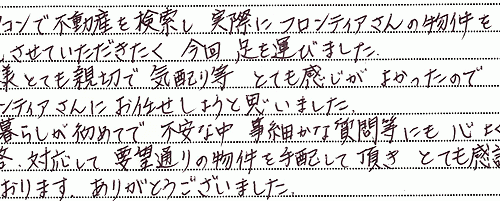 コンで不動産を検索し 実際に フロンティアさんの物件を
させていただきたく 今回 足を運びました.
とても親切で 気配り等 とても感じが よかったので
ンティアさんに お任せしようと思いました.
暮らしが初めてで 不安な中 事細かな質問等にも 心よく
答、対応して 要望通りの物件を手配して 頂き とても感謝
おります. ありがとうございました.